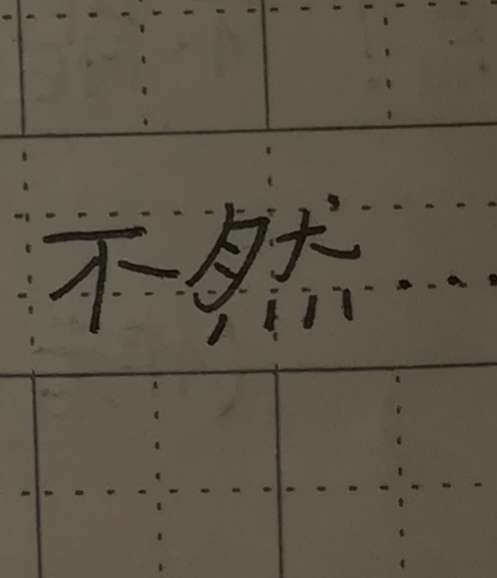 不然……